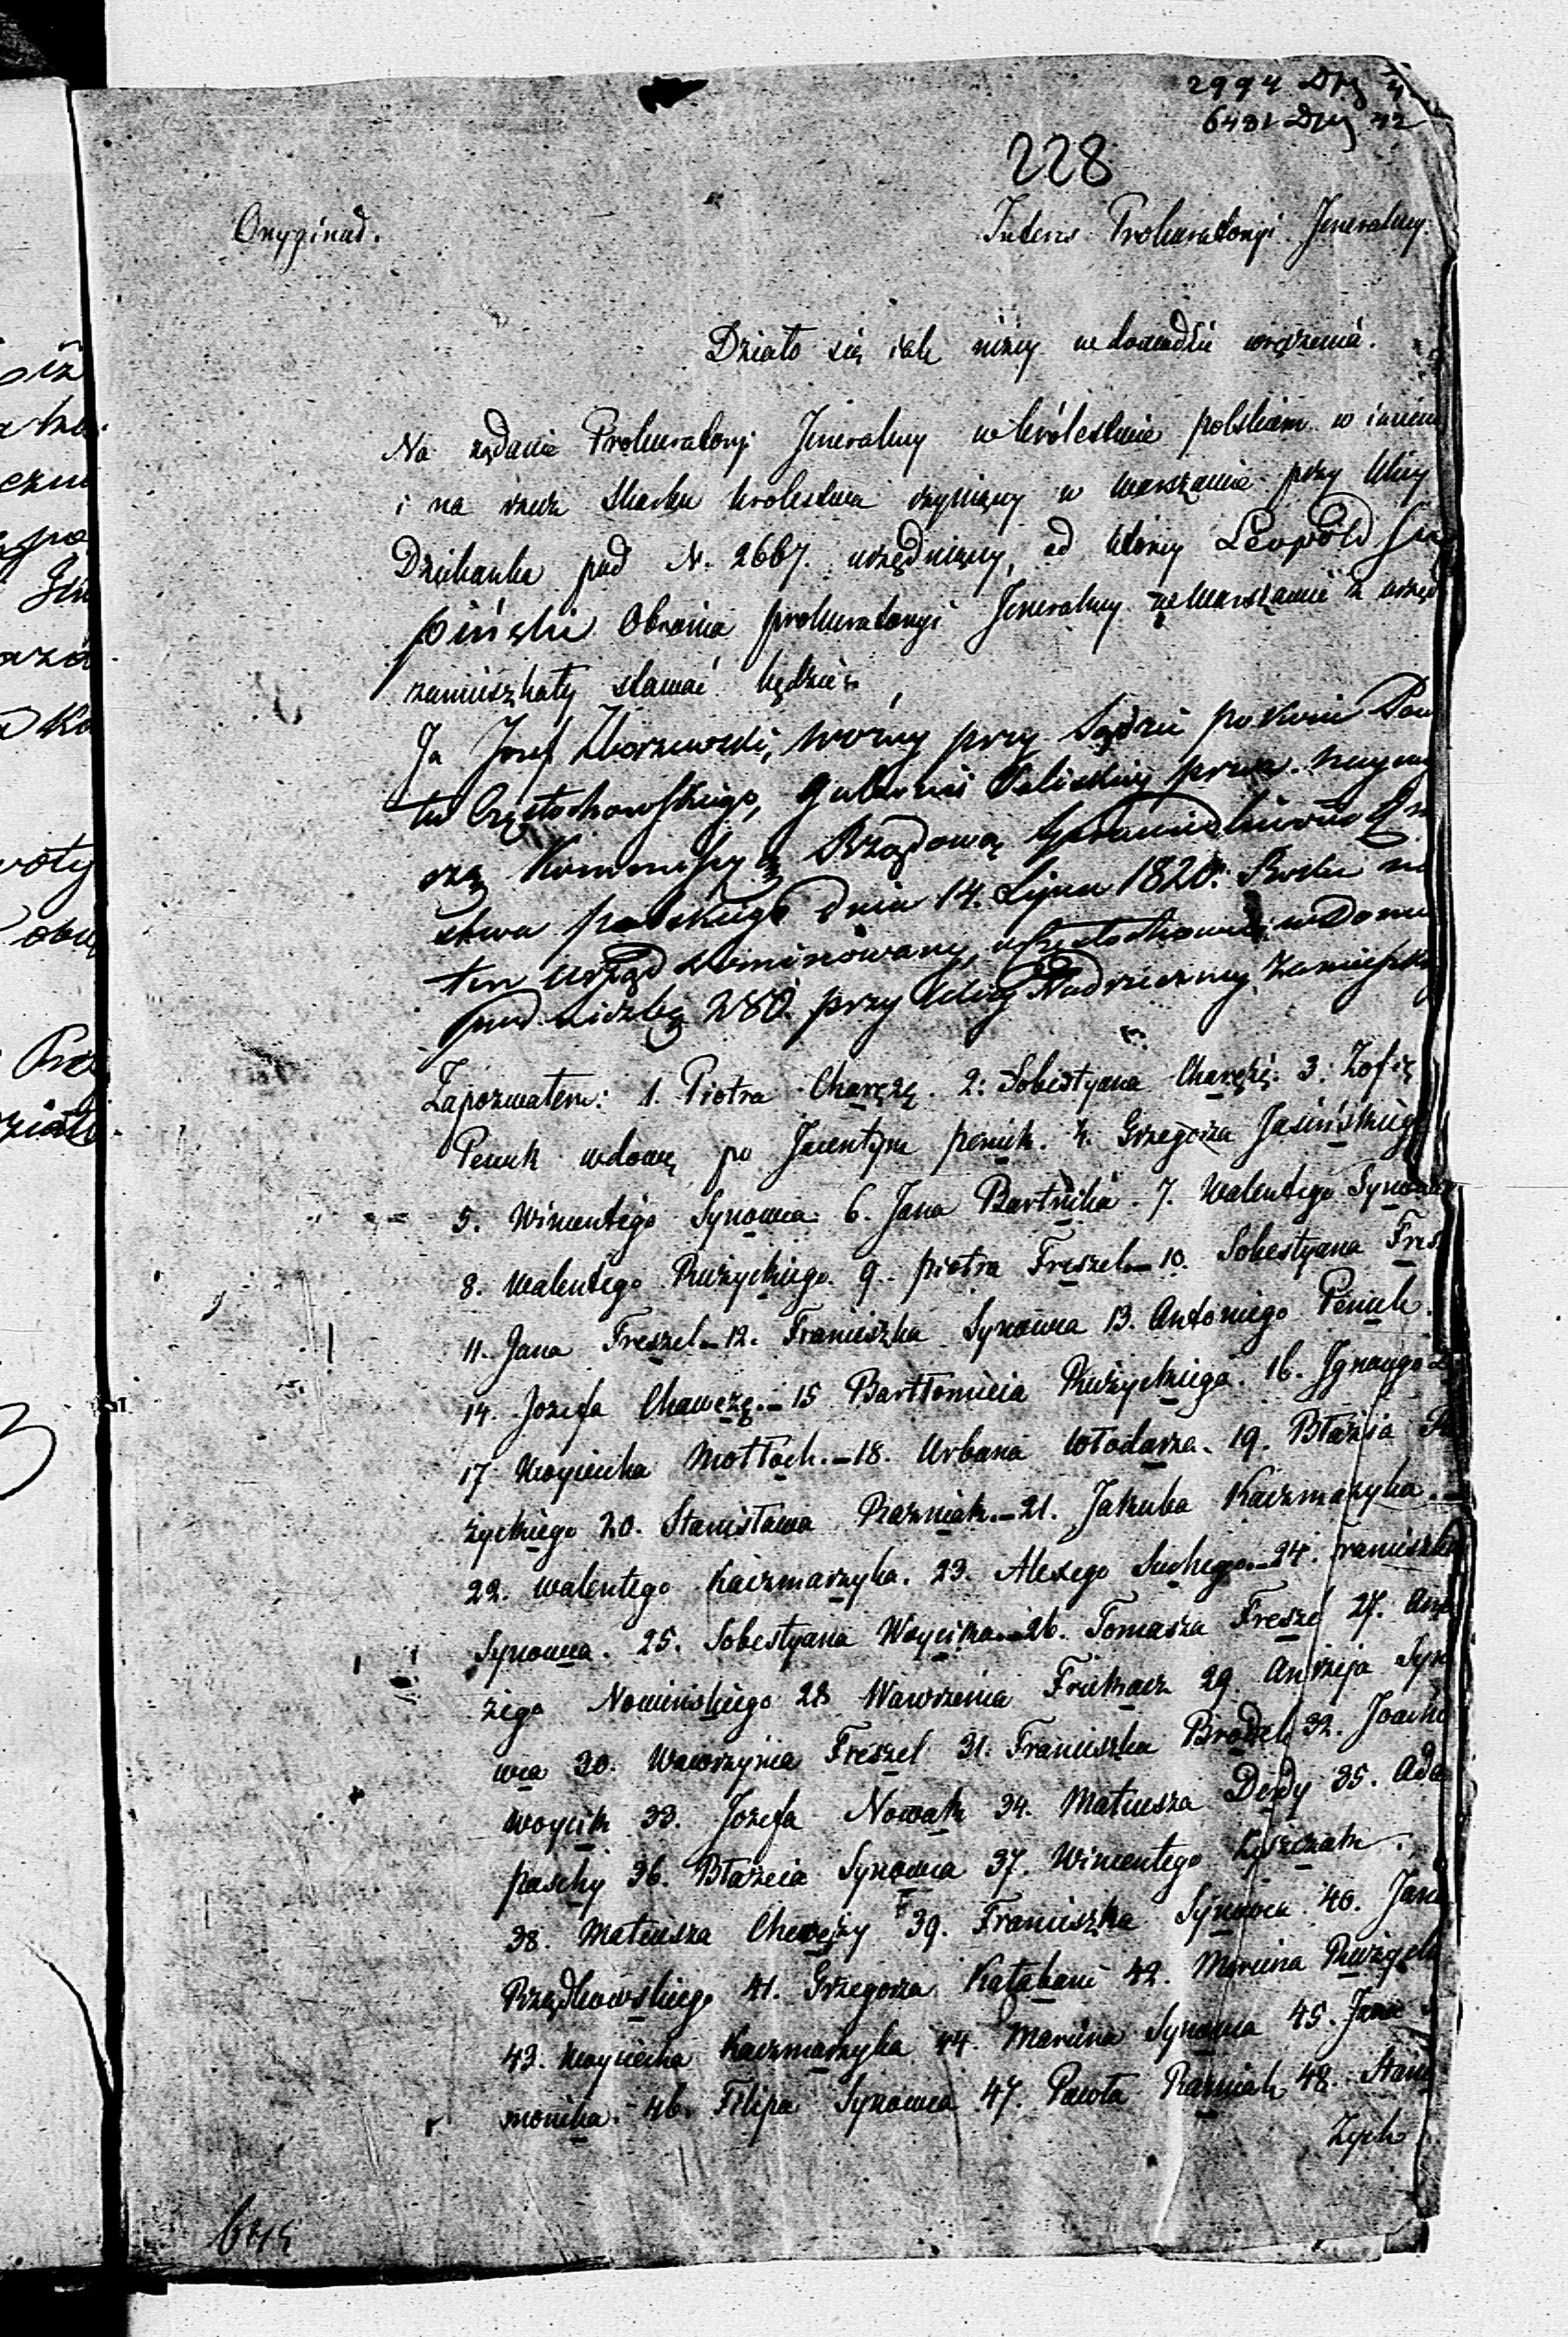 2994 Dpg
6431 Dpg 42
228
Oryginał. Interes Prokuratoryi Jeneralney
Działo się iak niżey w dowodzie wręczenia.
Na żądanie Prokuratoryi Jeneralney w królestwie polskiem w imieniu
i na rzecz Skarbu królestwa czyniącey w Warszawie przy Ulicy
Dziekanka pod N. 2667. urzędującey, od którey Leopold
Obrońca prokuratoryi Jeneralney w Warszawie z urzędu
zamieszkały stawać będzie
Ja Josef woźny przy Sądzie pokoiu Powia
tu Częstochowskiego, Gubernii Kaliskiey przez
szą Kommissyą Rządową Sprawiedliwości
stwa polskiego dnia 14. Lipca 1820. Roku na
ten urząd nominowany, w Częstochowie w Domu
pod liczbą 280. przy Ulicy Nadrzeczney zamieszkały
Zapozwałem: 1. Piotra Charęzę. 2: Sobestyana Charęzę. 3. Zofię
Penek wdowę po Jacentym penek. 4. Grzegorza Jasińskiego
5. Wincentego Synowca 6. Jana Bartnika. 7. Walentego Synowca
8. Walentego Ruzyckiego. 9. piotra Freszel 10. Sobestyana Fresz
11. Jana Freszel 12. Franciszka Synowca 13. Antoniego Penek.
14. Jozefa Chawęzę. 15 Bartłomieia Ruzyckiego. 16. Ignacego
17 Woyciecha Motłoch. 18. Urbana Włodarza. 19. Błażeia Ru
życkiego 20. Stanisława Razniak. 21. Jakuba Kaczmarzyka.
22. Walentego Kaczmarzyka. 23. Alexego Suchego. 24. Franciszka
Synowca. 25. Sobestyana Woycika. 26. Tomasza Freszel 27.
Nowińskiego 28 Wawrzenca 29. Andrzeja Syno
wca 30. Wawrzyńca Freszel 31. Franciszka 32. Joachi
Woycik 33. Jozefa Nowak 34. Mateusza Derdy 35. Ada
paschy 36. Błażeia Synowca 37. Wincentego
38. Mateusza Chawęzy 39. Franciszka Synowca 40. Jana
Rządkowskiego 41. Grzegorza 42. Marcina Ruzyck
43. Woyciecha Kaczmarzyka 44. Marcina Synowca 45. Jana
46. Filipa Synowca 47. Pawła Razniak 48. Stani
Zych